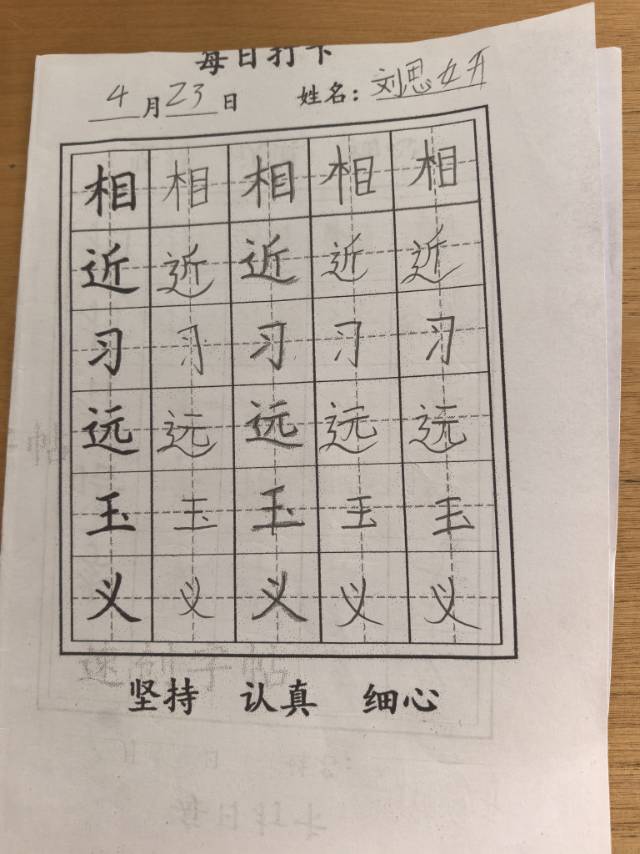 每日打卡
4月23日 姓名：刘思妍
相 相 相 相 相
近 近 近 近 近
习 习 习 习 习
远 远 远 远 远
玉 玉 玉 玉 玉
义 义 义 义 义
坚持 认真 细心